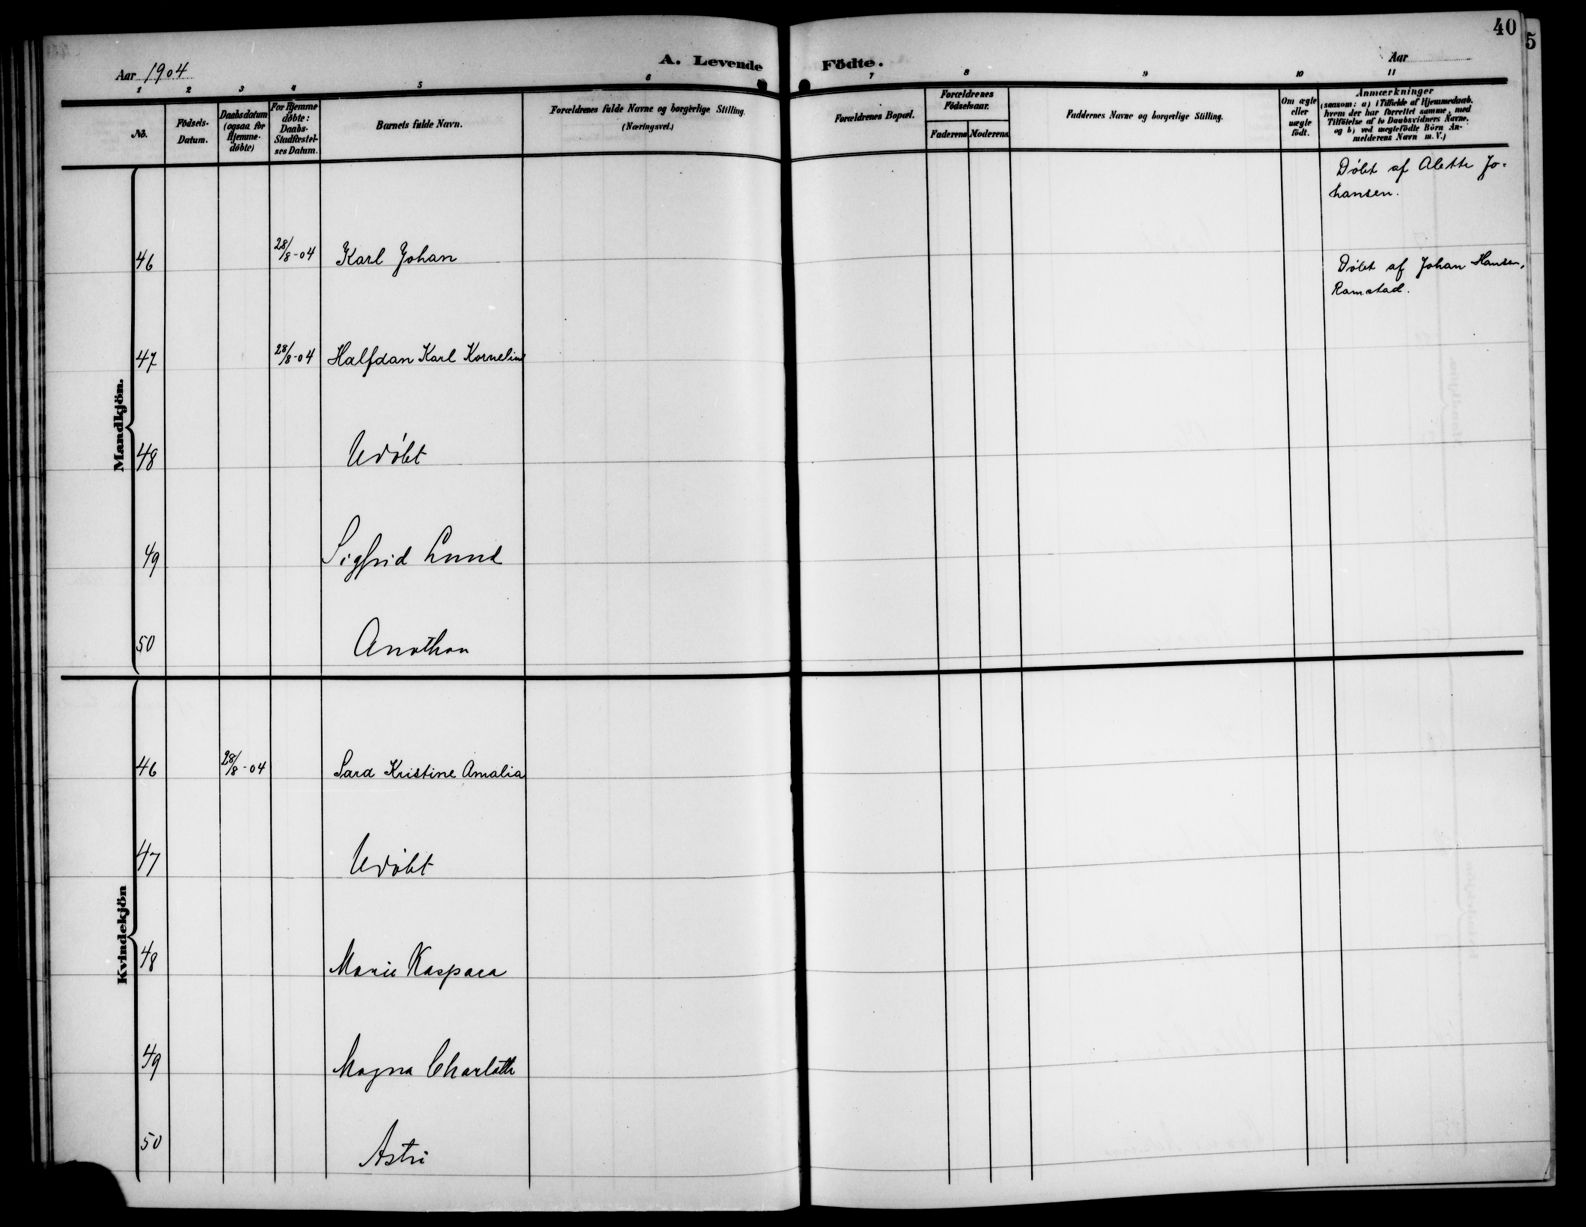 40
5
Aar 1904
A. Levende Födte.
Aar
1 2 3 4 5 6 7 8 9 10 11
No.
Födsels-
Datum.
Daabsdatum
(ogsaa for
Hjemme-
døbte)
For Hjemme
døbte:
Daabs-
Stadfæstel-
ses Datum.
Barnets fulde Navn.
Forældrenes fulde Navne og borgerlige Stilling.
(Næringsvei.)
Forældrenes Bopæl.
Forældrenes
Födselsaar.
Faderens
Moderens
Faddernes Navne og borgerlige Stilling.
Om ægte
eller
uægte
födt.
Anmærkninger
(saasom: a) i Tilfælde af Hjemmedaab,
hvem der har forrettet samme, med
Tilföielse af to Daabsvidners Navne,
og b) ved uægtefödte Börn An-
melderens Navn m. V.)
Mandkjön.
Døbt af Alette Jo-
hansen.
46 28/8-04 Karl Johan
Døbt af Johan Hansen,
Ramstad.
47 28/8-04 Halfdan Karl Kornelius
48 Udøbt
49 Sigfrid Lund
50 Anathon
Kvindekjön
46 28/8-04 Sara Kristine Amalia
47 Udøbt
48 Marie Kaspara
49 Magna Charlotte
50 Astri